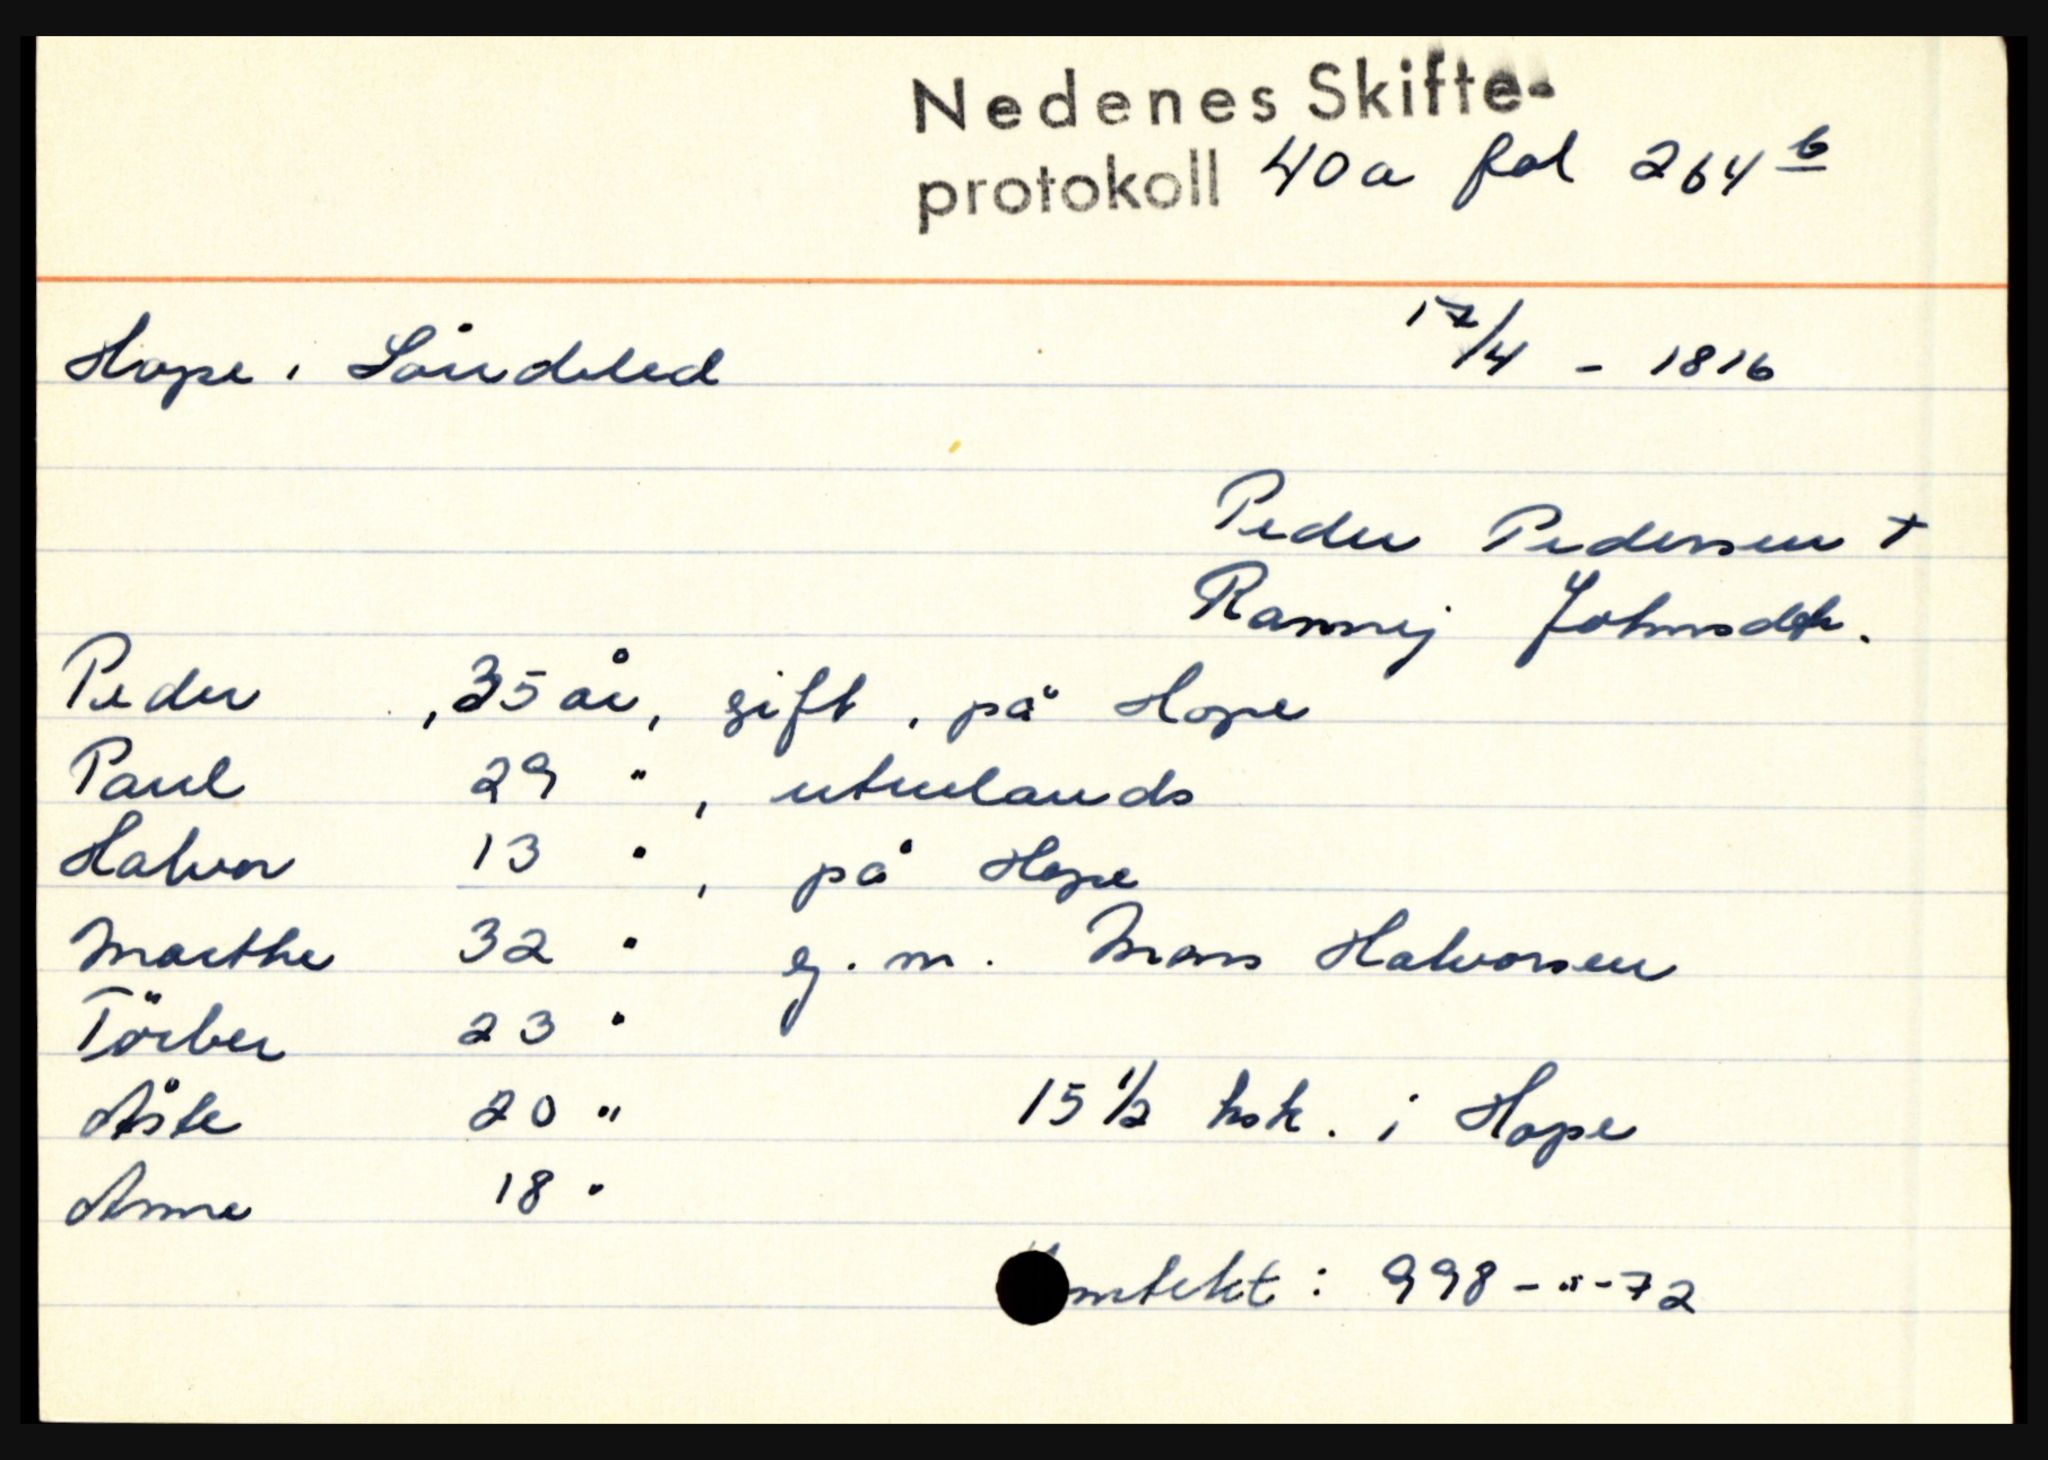 Nedenes Skifte-
protokoll 40a fol 264 b
Hope, Söndeled 17/4 - 1816
Peder Pedersen +
Rannej Johnsdtr.
Peder , 35 år, gift, på Hope
Paul 29 " , utenlands
Halvor 13 " , på Hope
Marthe 32 " g. m. Mons Halvorsen
Törber 23 "
Åste 20 " 15 1/2 ksk. i Hope
Anne 18 "
mtekt : 998 - " - 72